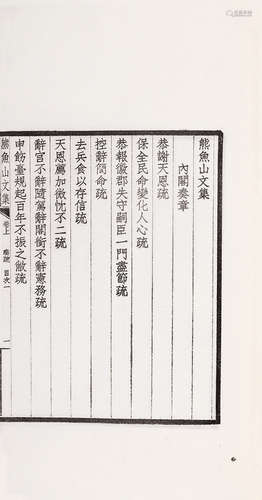 熊魚山文集
內閣奏章
恭謝天恩疏
保全民命變化人心疏
恭報徽郡失守嗣臣一門盡節疏
控辭簡命疏
去兵食以存信疏
天恩薦加微忱不二疏
辭官不辭隨駕辭閣銜不辭憲務疏
申飭臺規起百年不振之敝疏
熊魚山文集
卷上
奏疏 目次一
一